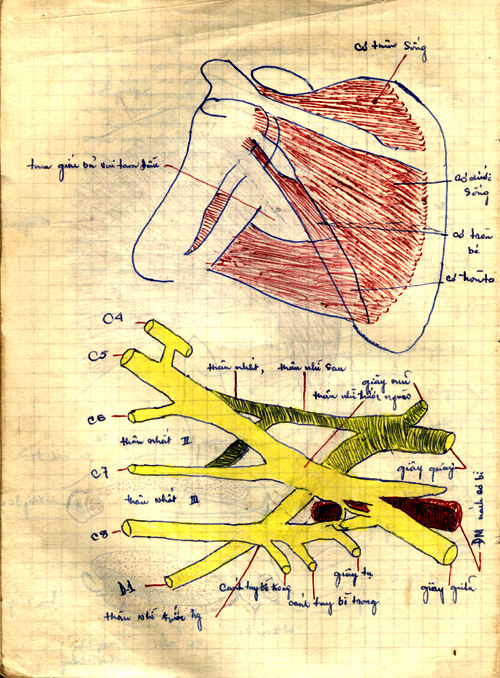 cơ trên sống
tam giác bả vai tam đầu
cơ dưới
sống
cơ tròn
bé
cơ tròn to
C4
C5
thân nhất, thân nhì sau
giây mũ
thân nhì trước ngoài
C6
thân nhất II
C7
giây quay
thân nhất III
C8
ĐM nách
D1
cánh tay bì trong
giây trụ
giây giữa
thân nhì trước